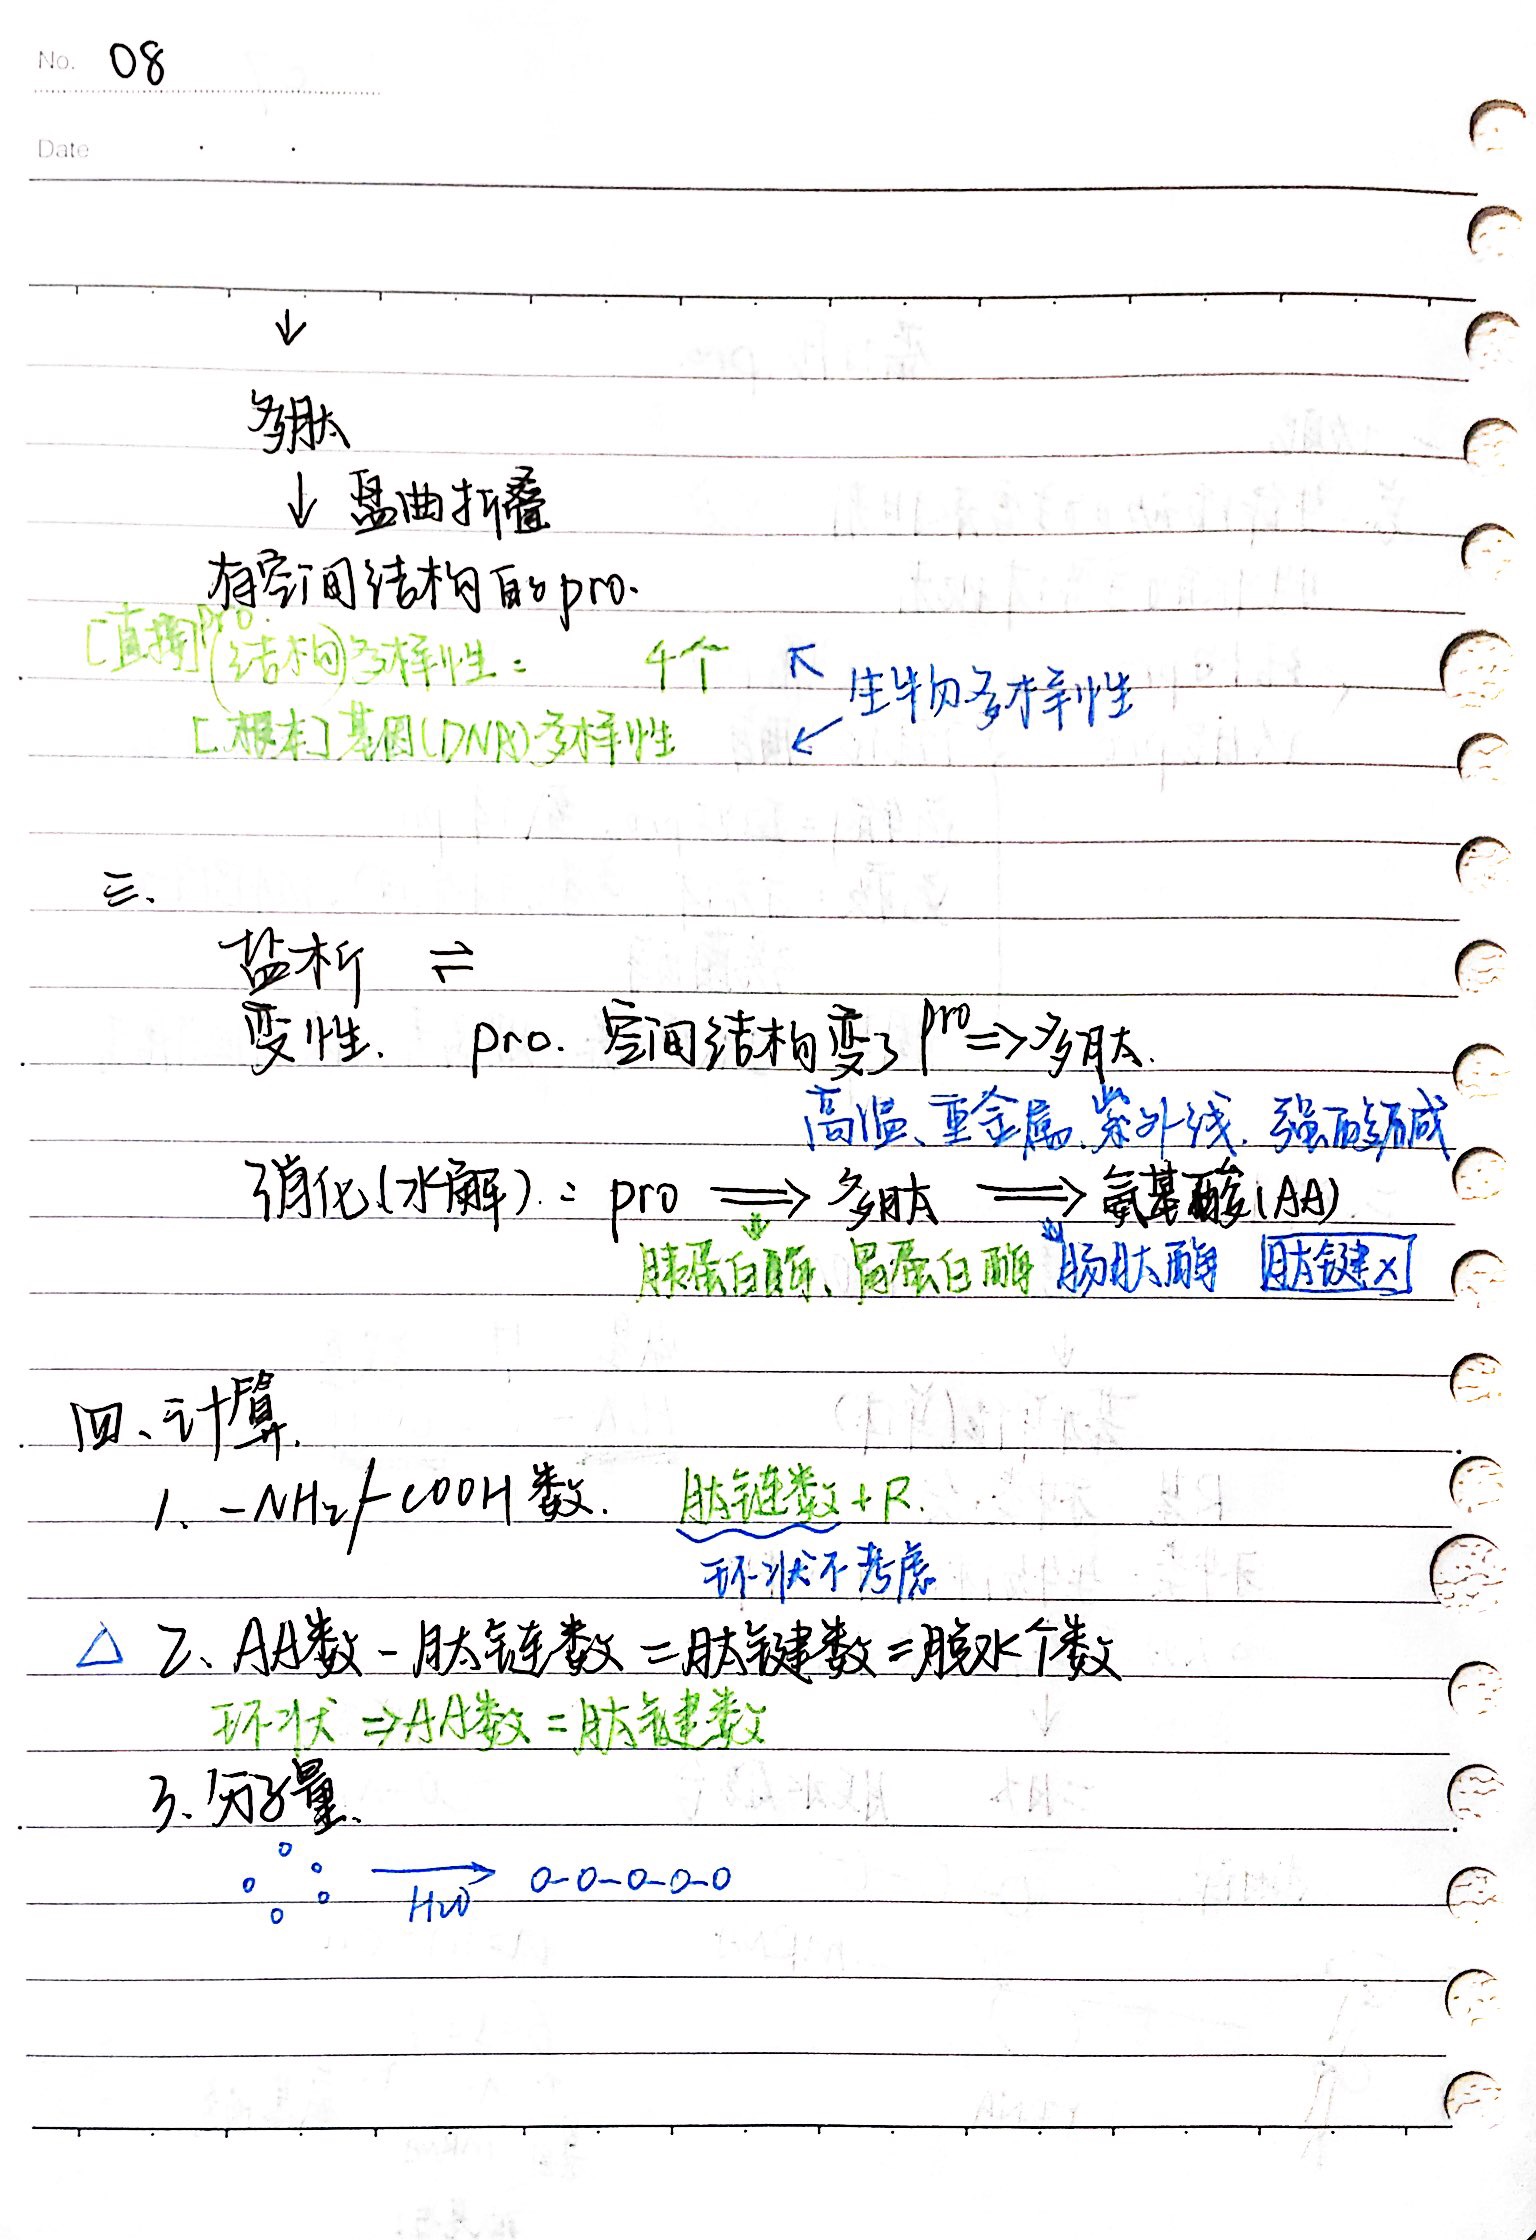 No. 08
Date
↓
多肽
↓ 盘曲折叠
有空间结构的pro.
[直接]pro.(结构)多样性: 4个 ↖ 生物多样性
[根本]基因(DNA)多样性 ↙
三.
盐析 ⇌
变性. pro. 空间结构变了 pro⇒多肽.
高温、重金属.紫外线. 强酸强碱
消化(水解).: pro ⇒ 多肽 ⇒ 氨基酸(AA)
胰蛋白酶、胃蛋白酶 肠肽酶 肽键×
四、计算.
1、-NH₂/-COOH数. 肽链数+R.
环状不考虑
△ 2、AA数-肽链数=肽键数=脱水个数
环状⇒AA数=肽键数
3、分子量.
H₂O O-O-O-O-O